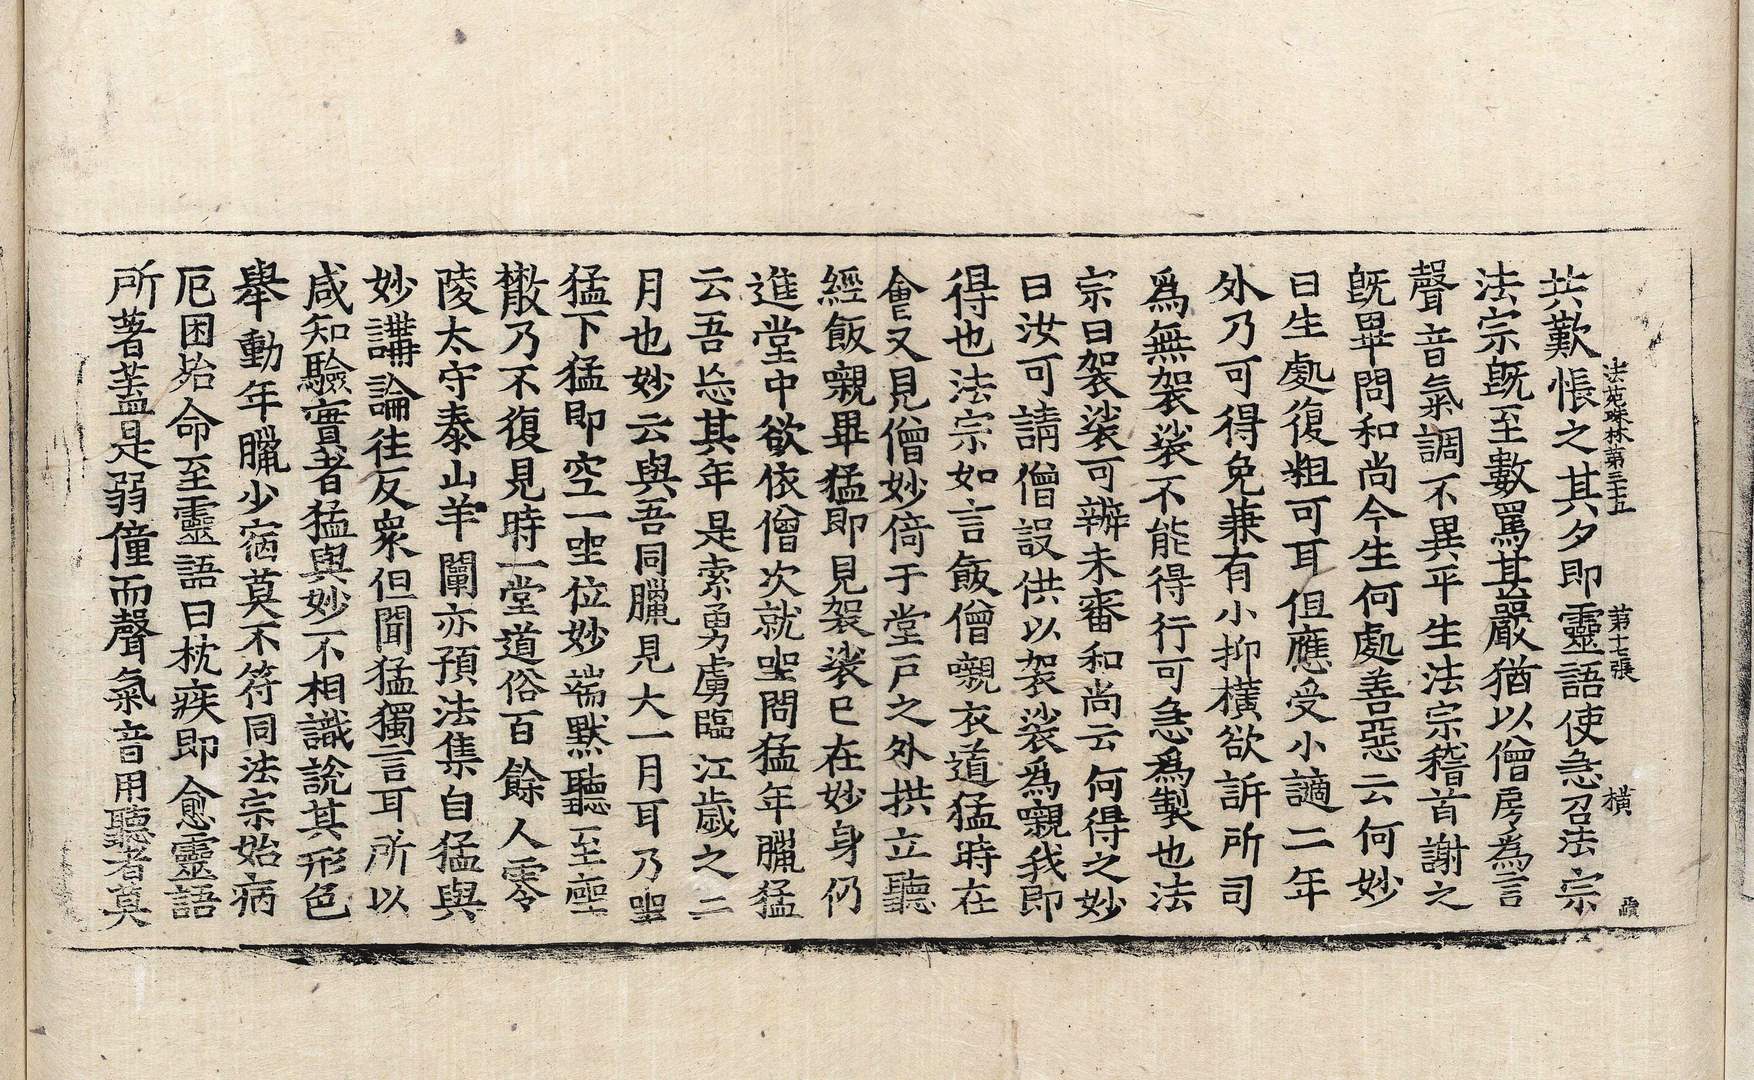 法苑珠林第三十五 第十七張 橫
共歎悵之其夕即靈語使急召法宗
法宗旣至數罵甚嚴猶以僧房爲言
聲音氣調不異平生法宗稽首謝之
旣畢問和尚今生何處善惡云何妙
曰生處復粗可耳但應受小讁二年
外乃可得免兼有小抑橫欲訴所司
爲無袈裟不能得行可急爲製也法
宗曰袈裟可辦未審和尚云何得之妙
曰汝可請僧設供以袈裟爲嚫我即
得也法宗如言飯僧嚫衣道猛時在
會又見僧妙倚于堂戶之外拱立聽
經飯嚫畢猛即見袈裟已在妙身仍
進堂中欲依僧次就坐問猛年臘猛
云吾忘其年是索虜臨江歲之二
月也妙云與吾同臘見大一月耳乃坐
猛下猛即空一坐位妙端默聽至座
散乃不復見時一堂道俗百餘人零
陵太守泰山羊闡亦預法集自猛與
妙講論往反衆但聞猛獨言耳所以
咸知驗實者猛與妙不相識說其形色
舉動年臘少宿莫不符同法宗始病
厄困殆命至靈語曰枕疾即愈靈語
所著蓋是弱僮而聲氣音用聽者莫